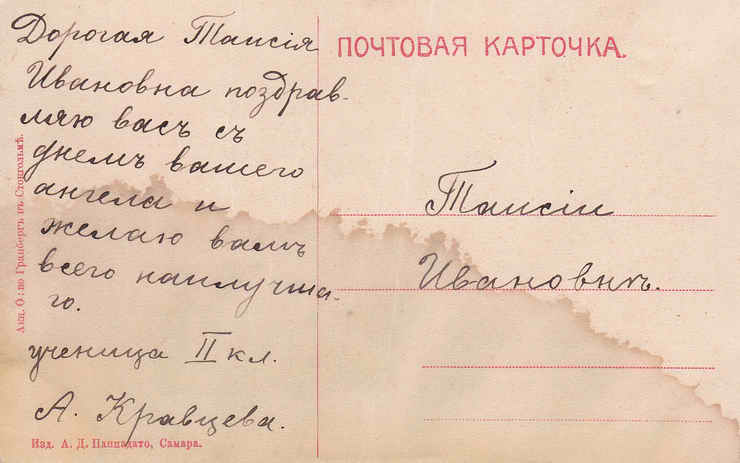 Дорогая Таисія
Ивановна поздрав-
ляю васъ съ
днемъ вашего
ангела и
желаю вамъ
всего наилучша-
го.
ученица II кл.
А. Кравцева.
ПОЧТОВАЯ КАРТОЧКА.
Таисіи
Ивановнѣ.
Акц. О:во Гранбергъ въ Стокгольмѣ.
Изд. А. Д. Паппадато, Самара.